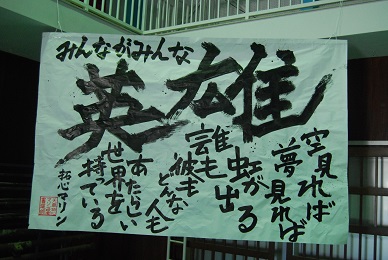 みんながみんな
英雄
空見れば
夢見れば
虹が出る
誰も彼も
どんな人も
あたらしい
世界を
持ている
拓心マリン